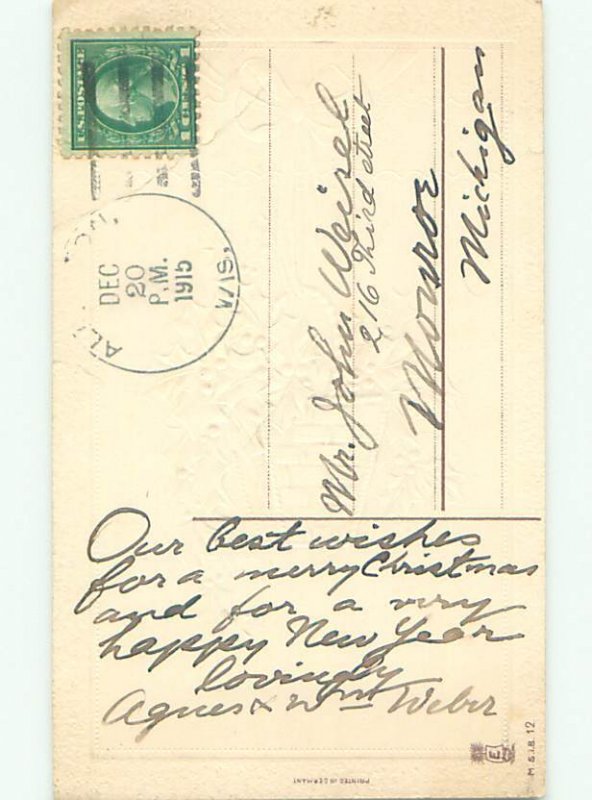 U.S. POSTAGE
DEC
20
P.M.
1915
WIS.
Mr. John Weisel
216 Third street
Monroe
Michigan
Our best wishes
for a merry Christmas
and for a very
happy New Year
lovingly
Agnes & Wm Weber
PRINTED IN GERMANY
E
M.S.i.B. 12